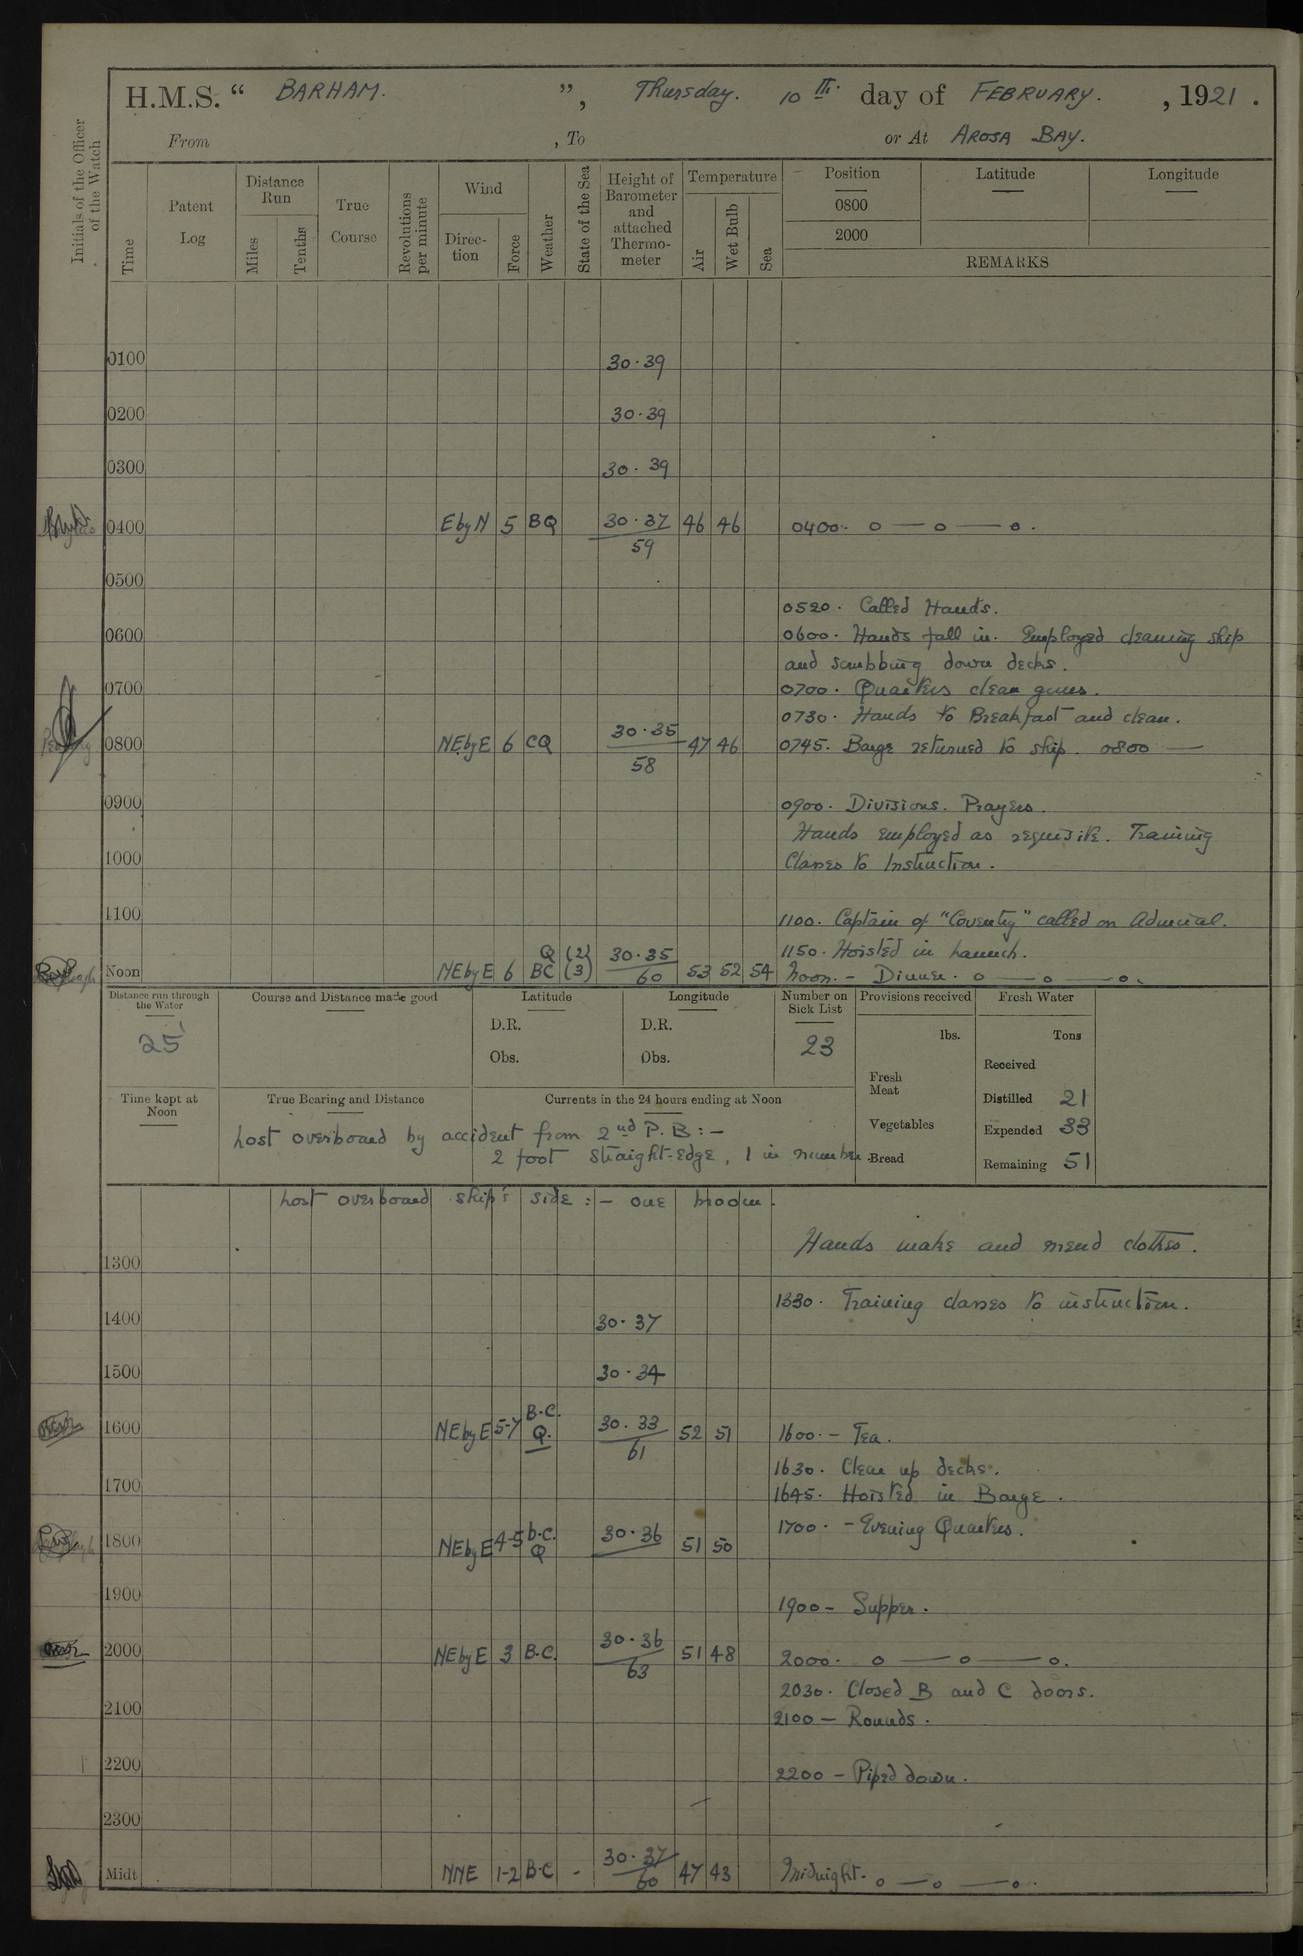 H.M.S. “ BARHAM. ”, Thursday. 10th. day of FEBRUARY. , 1921 .
From , To or At AROSA BAY.
Initials of the Officer of the Watch
Time
Patent Log
Distance Run
Miles
Tenths
True Course
Revolutions per minute
Wind
Direc-tion
Force
Weather
State of the Sea
Height of Barometer and attached Thermo-meter
Temperature
Air
Wet Bulb
Sea
Position Latitude Longitude
0800
2000
REMARKS
0100 30.39
0200 30.39
0300 30.39
0400 E by N 5 BQ 30.37 46 46 0400. o — o — o.
59
0500
0520. Called Hands.
0600 0600. Hands fall in. Employed cleaning ship
and scrubbing down decks.
0700 0700. Quarters clean guns.
0730. Hands to Breakfast and clean.
0800 NE by E 6 CQ 30.35 47 46 0745. Barge returned to ship. 0800 —
58
0900 0900. Divisions. Prayers.
Hands employed as requisite. Training
1000 Classes to Instruction.
1100 1100. Captain of "Coventry" called on Admiral.
Q (2) 30.35 1150. Hoisted in Launch.
Noon NE by E 6 BC (3) 60 53 52 54 Noon. - Dinner. o — o — o.
Distance run through the Water
25
Course and Distance made good
Latitude
D.R.
Obs.
Longitude
D.R.
Obs.
Number on Sick List
23
Provisions received
lbs.
Fresh Meat
Vegetables
Bread
Fresh Water
Tons
Received
Distilled 21
Expended 33
Remaining 51
Time kept at Noon
True Bearing and Distance
Currents in the 24 hours ending at Noon
Lost overboard by accident from 2nd P.B :-
2 foot straight-edge, 1 in number.
Lost overboard ship's side :- one broom.
Hands make and mend clothes.
1300
1330. Training classes to instruction.
1400 30.37
1500 30.34
1600 NE by E 5-7 B.C. Q. 30.33 52 51 1600. - Tea.
61
1630. Clear up decks.
1700 1645. Hoisted in Barge.
1700. - Evening Quarters.
1800 NE by E 4-5 b.c. Q 30.36 51 50
1900 1900 - Supper.
2000 NE by E 3 B.C. 30.36 51 48 2000. o — o — o.
63
2030. Closed B and C doors.
2100 2100 - Rounds.
2200 2200 - Piped down.
2300
Midt NNE 1-2 B.C - 30.37 47 43 Midnight. o — o — o.
60